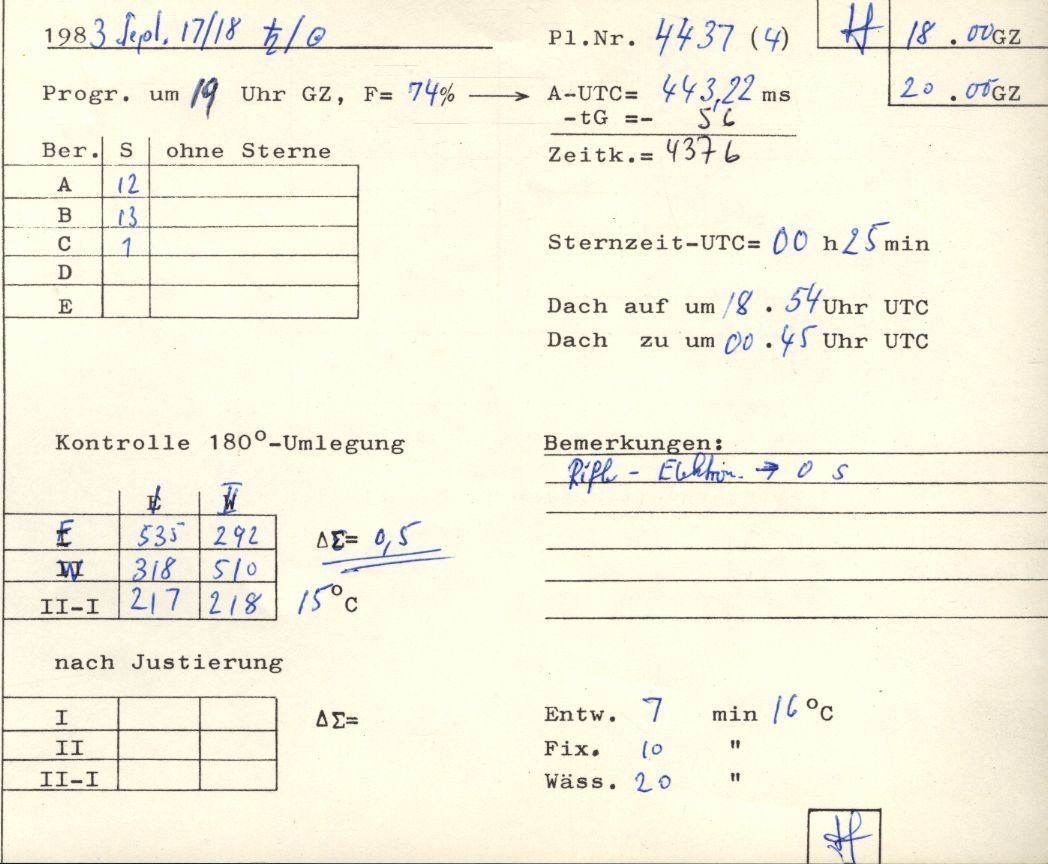 1983 Sept. 17/18 ♄/☉
Pl.Nr. 4437 (4)
18.00 GZ
20.00 GZ
Progr. um 19 Uhr GZ, F= 74% → A-UTC= 443,22 ms
-tG =- 56
Zeitk.= 4376
Ber. S ohne Sterne
A 12
B 13
C 1
D
E
Sternzeit-UTC= 00 h 25 min
Dach auf um 18.54 Uhr UTC
Dach zu um 00.45 Uhr UTC
Kontrolle 180°-Umlegung
I II
E 535 292
W 318 510
II-I 217 218
ΔΣ= 0,5
15°C
Bemerkungen:
- Elektron. → 0 S
nach Justierung
I
II
II-I
ΔΣ=
Entw. 7 min 16°C
Fix. 10 "
Wäss. 20 "